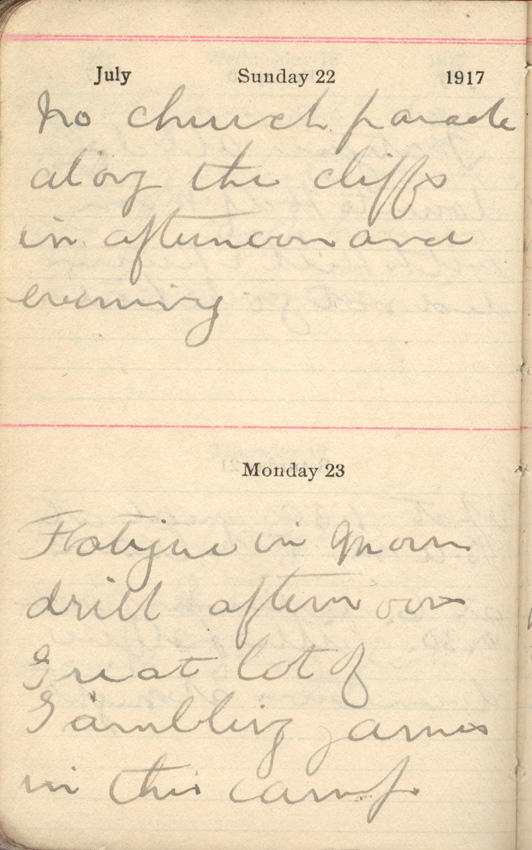 July Sunday 22 1917
No church parade
along the cliffs
in afternoon and
evening
Monday 23
Fatigue in morn
drill afternoon
Great lot of
Gambling games
in this camp